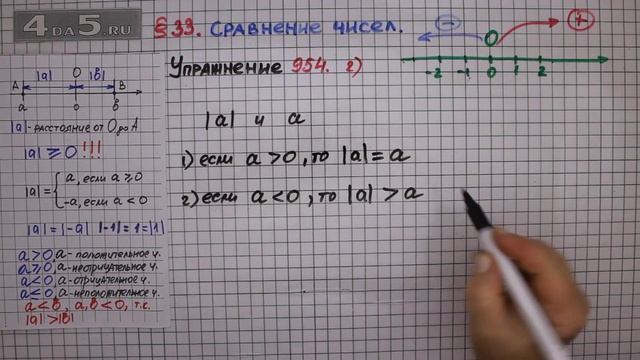 4DA5.RU
§ 33. Сравнение чисел.
Упражнение 954. 2)
− 0 +
-2 -1 0 1 2
|a| 0 |b|
A B
a o b
|a|-расстояние от 0 до A
|a| ⩾ 0 !!!
|a| = { a, если a ⩾ 0
-a, если a < 0
|a| = |-a| |-1| = 1 = |1|
a > 0, a - положительное ч.
a ⩾ 0, a - неотрицательное ч.
a < 0, a - отрицательное ч.
a ⩽ 0, a - неположительное ч.
a < b, a, b < 0, т.с.
|a| > |b|
|a| и a
1) если a > 0, то |a| = a
2) если a < 0, то |a| > a